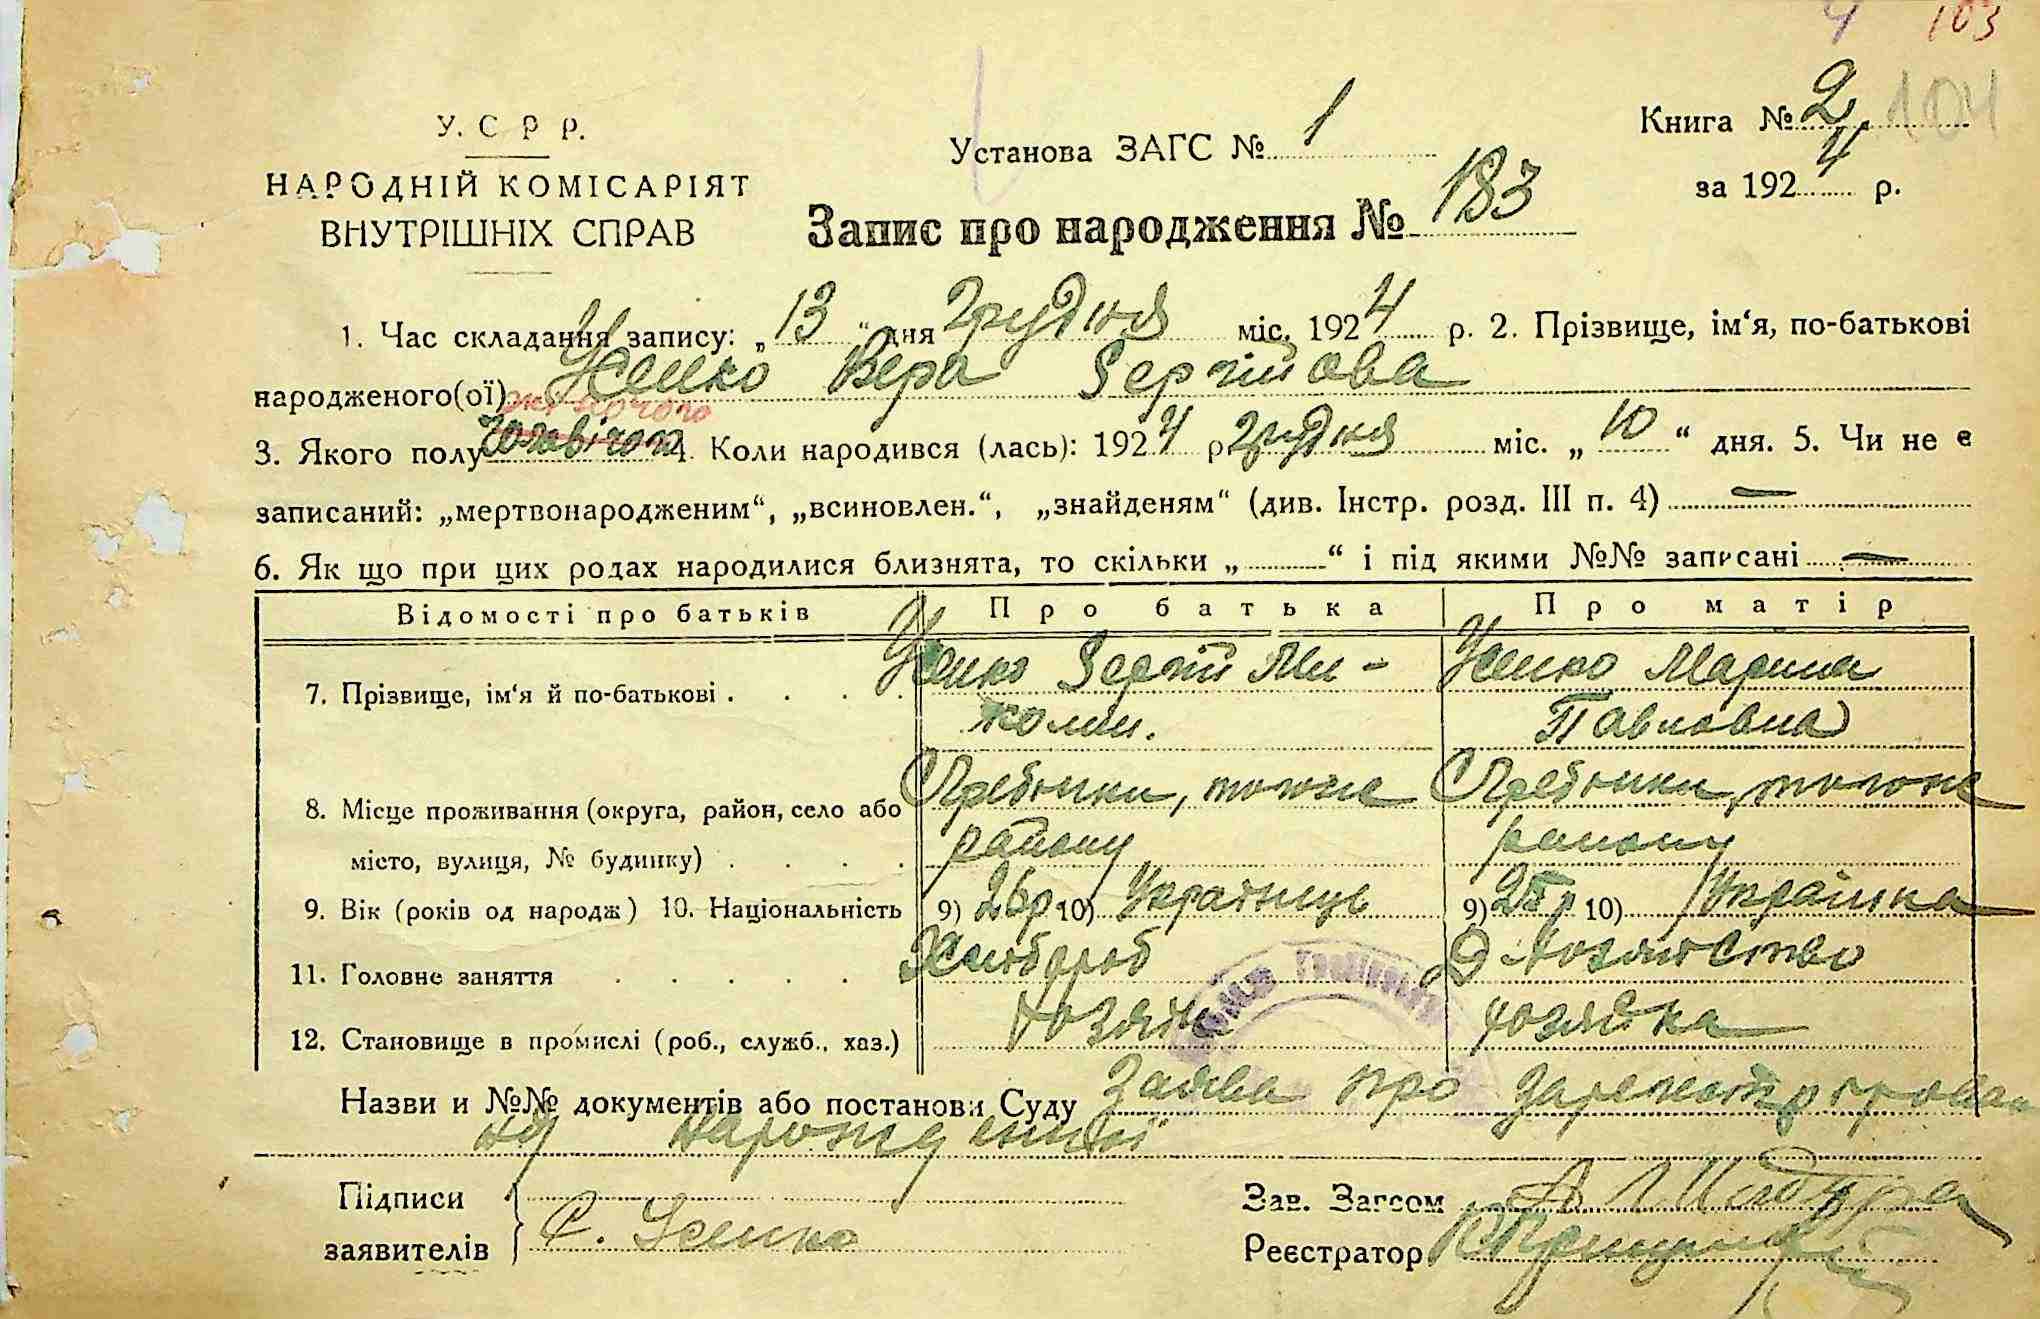 4 103
У. С Р Р.
НАРОДНІЙ КОМІСАРІЯТ
ВНУТРІШНІХ СПРАВ
Установа ЗАГС № 1
Книга № 2 104
за 1924 р.
Запис про народження № 183
1. Час складання запису: „13" дня Грудня міс. 1924 р. 2. Прізвище, ім'я, по-батькові
народженого(ої) Усенко Вера Сергіїова
жіночого
3. Якого полу Чоловічого 4. Коли народився (лась): 1924 р Грудня міс. „10" дня. 5. Чи не є
записаний: „мертвонародженим", „всиновлен.", „знайденям" (див. Інстр. розд. III п. 4) —
6. Як що при цих родах народилися близнята, то скільки „ " і під якими №№ записані —
Відомості про батьків Про батька Про матір
7. Прізвище, ім'я й по-батькові . . . . Усенко Сергій Ми- Усенко Марина
коли. Павловна
8. Місце проживання (округа, район, село або С Гребінки, тогоже С Гребінки, тогоже
місто, вулиця, № будинку) . . . . району району
9. Вік (років од народж) 10. Національність 9) 26р 10) Українець 9) 25 р 10) Українка
11. Головне заняття . . . . . Хлібороб Д хозяйство
12. Становище в промислі (роб., служб., хаз.) хозяін хозяйка
Назви и №№ документів або постанови Суду Заява про
Підписи
заявителів С. Усенко
Зав. Загсом
Реєстратор